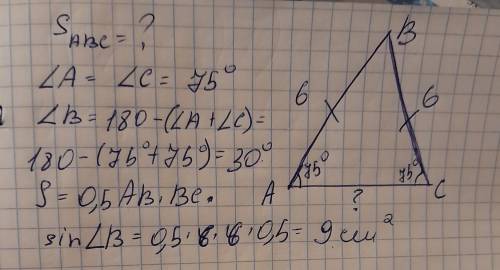 S ABC = ?
∠A = ∠C = 75°
∠B = 180-(∠A+∠C)=
180-(75°+75°)=30°
S = 0,5 AB · BC ·
sin∠B = 0,5 · 6 · 6 · 0,5 = 9 см²
B
6
6
75°
75°
A
?
C